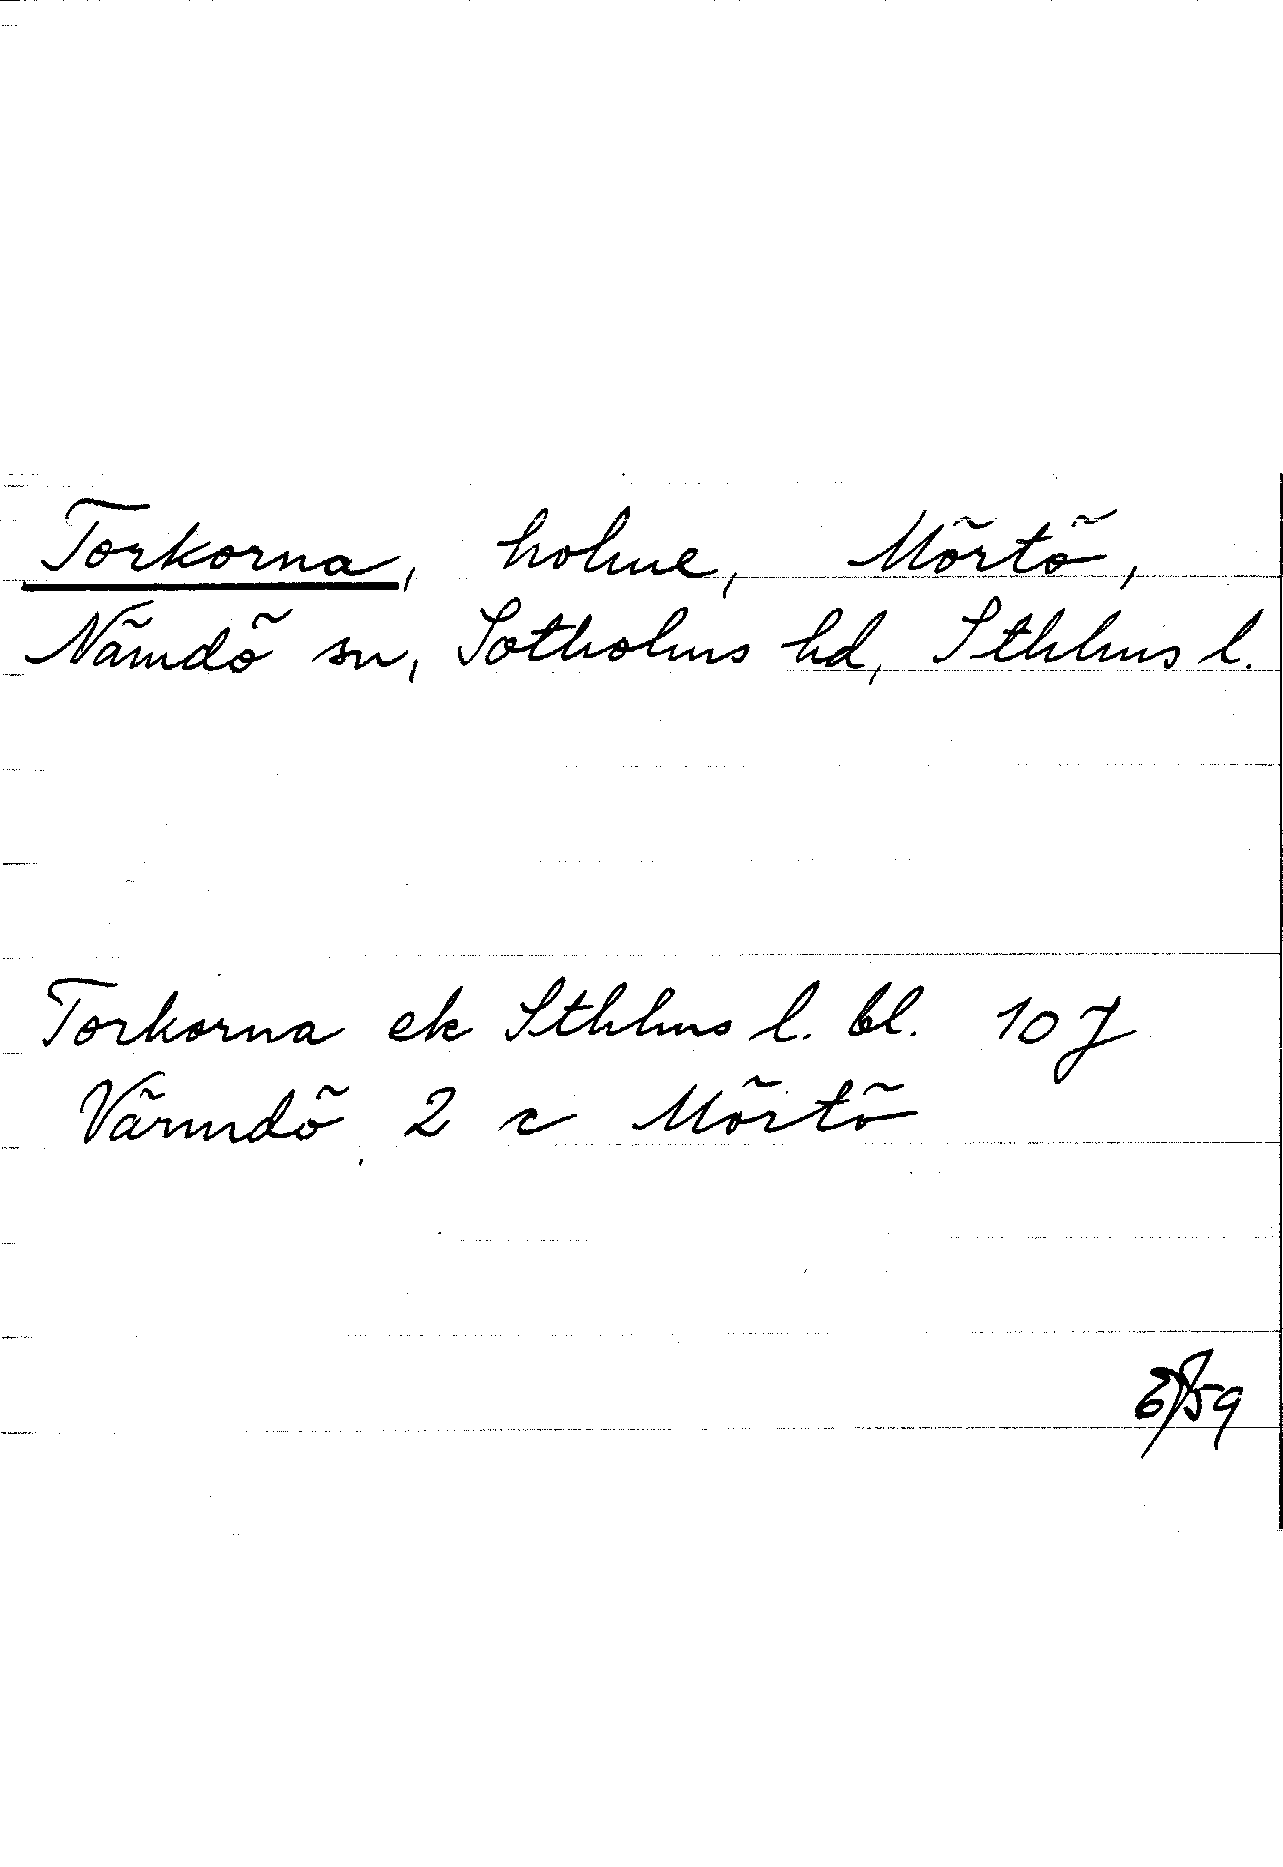 Torkorna, holme, Mörtö,
Nämdö sn, Sotholms hd, Sthlms l.
Torkorna ek Sthlms l. bl. 107
Värmdö 2 c Mörtö